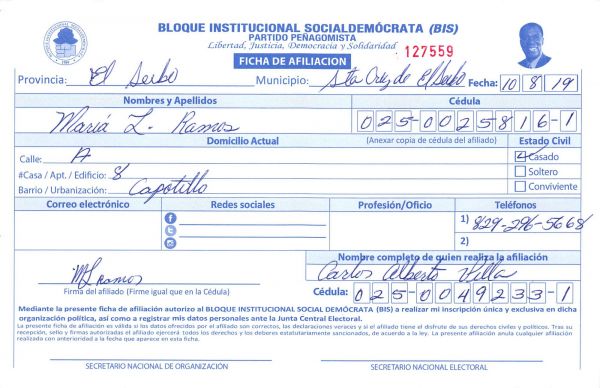 BLOQUE INSTITUCIONAL SOCIALDEMÓCRATA (BIS)
PARTIDO PEÑAGOMISTA
Libertad, Justicia, Democracia y Solidaridad
127559
FICHA DE AFILIACION
Provincia: El Seibo Municipio: Sta Cruz de El Seibo Fecha: 10 8 19
Nombres y Apellidos Cédula
Mariá L. Ramos 025-0025816-1
Domicilio Actual (Anexar copia de cédula del afiliado) Estado Civil
Calle: A Casado
#Casa / Apt. / Edificio: 8 Soltero
Barrio / Urbanización: Capotillo Conviviente
Correo electrónico Redes sociales Profesión/Oficio Teléfonos
1) 829-296-5668
2)
Nombre completo de quien realiza la afiliación
ML ramos Carlos Alberto Villa
Firma del afiliado (Firme igual que en la Cédula) Cédula: 025-0049233-1
Mediante la presente ficha de afiliación autorizo al BLOQUE INSTITUCIONAL SOCIAL DEMÓCRATA (BIS) a realizar mi inscripción única y exclusiva en dicha
organización política, así como a registrar mis datos personales ante la Junta Central Electoral.
La presente ficha de afiliación es válida si los datos ofrecidos por el afiliado son correctos, las declaraciones veraces y si el afiliado tiene el disfrute de sus derechos civiles y políticos. Tras su
recepción, sello y firmas autorizadas el afiliado ejercerá todos los derechos y los deberes estatutariamente sancionados, de acuerdo a la ley. La presente afiliación anula cualquier afiliación
realizada con anterioridad a la fecha que aparece en esta ficha.
SECRETARIO NACIONAL DE ORGANIZACIÓN SECRETARIO NACIONAL ELECTORAL